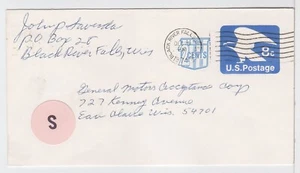 John P
P.O Box 28
Black River Falls, Wis
BLACK RIVER FALL
CENTS
8c
U.S. Postage
General Motors Acceptance Corp
727 Kenney Avenue
Eau Claire Wis. 54701
S